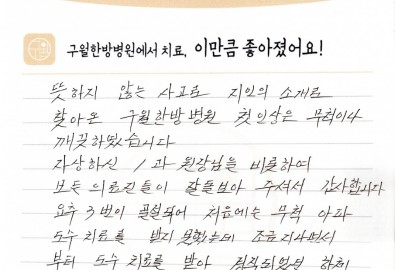 구월한방병원에서 치료, 이만큼 좋아졌어요!
뜻하지 않는 사고로 지인의 소개로
찾아온 구월한방병원 첫인상은 무척이나
깨끗하였습니다
자상하신 1과 원장님을 비롯하여
모든 의료진들이 잘돌보아 주셔서 감사합니다
요추 3번이 골절되어 처음에는 무척 아파
도수치료를 받지 못했는데 조금지나면서
부터 도수 치료를 받아